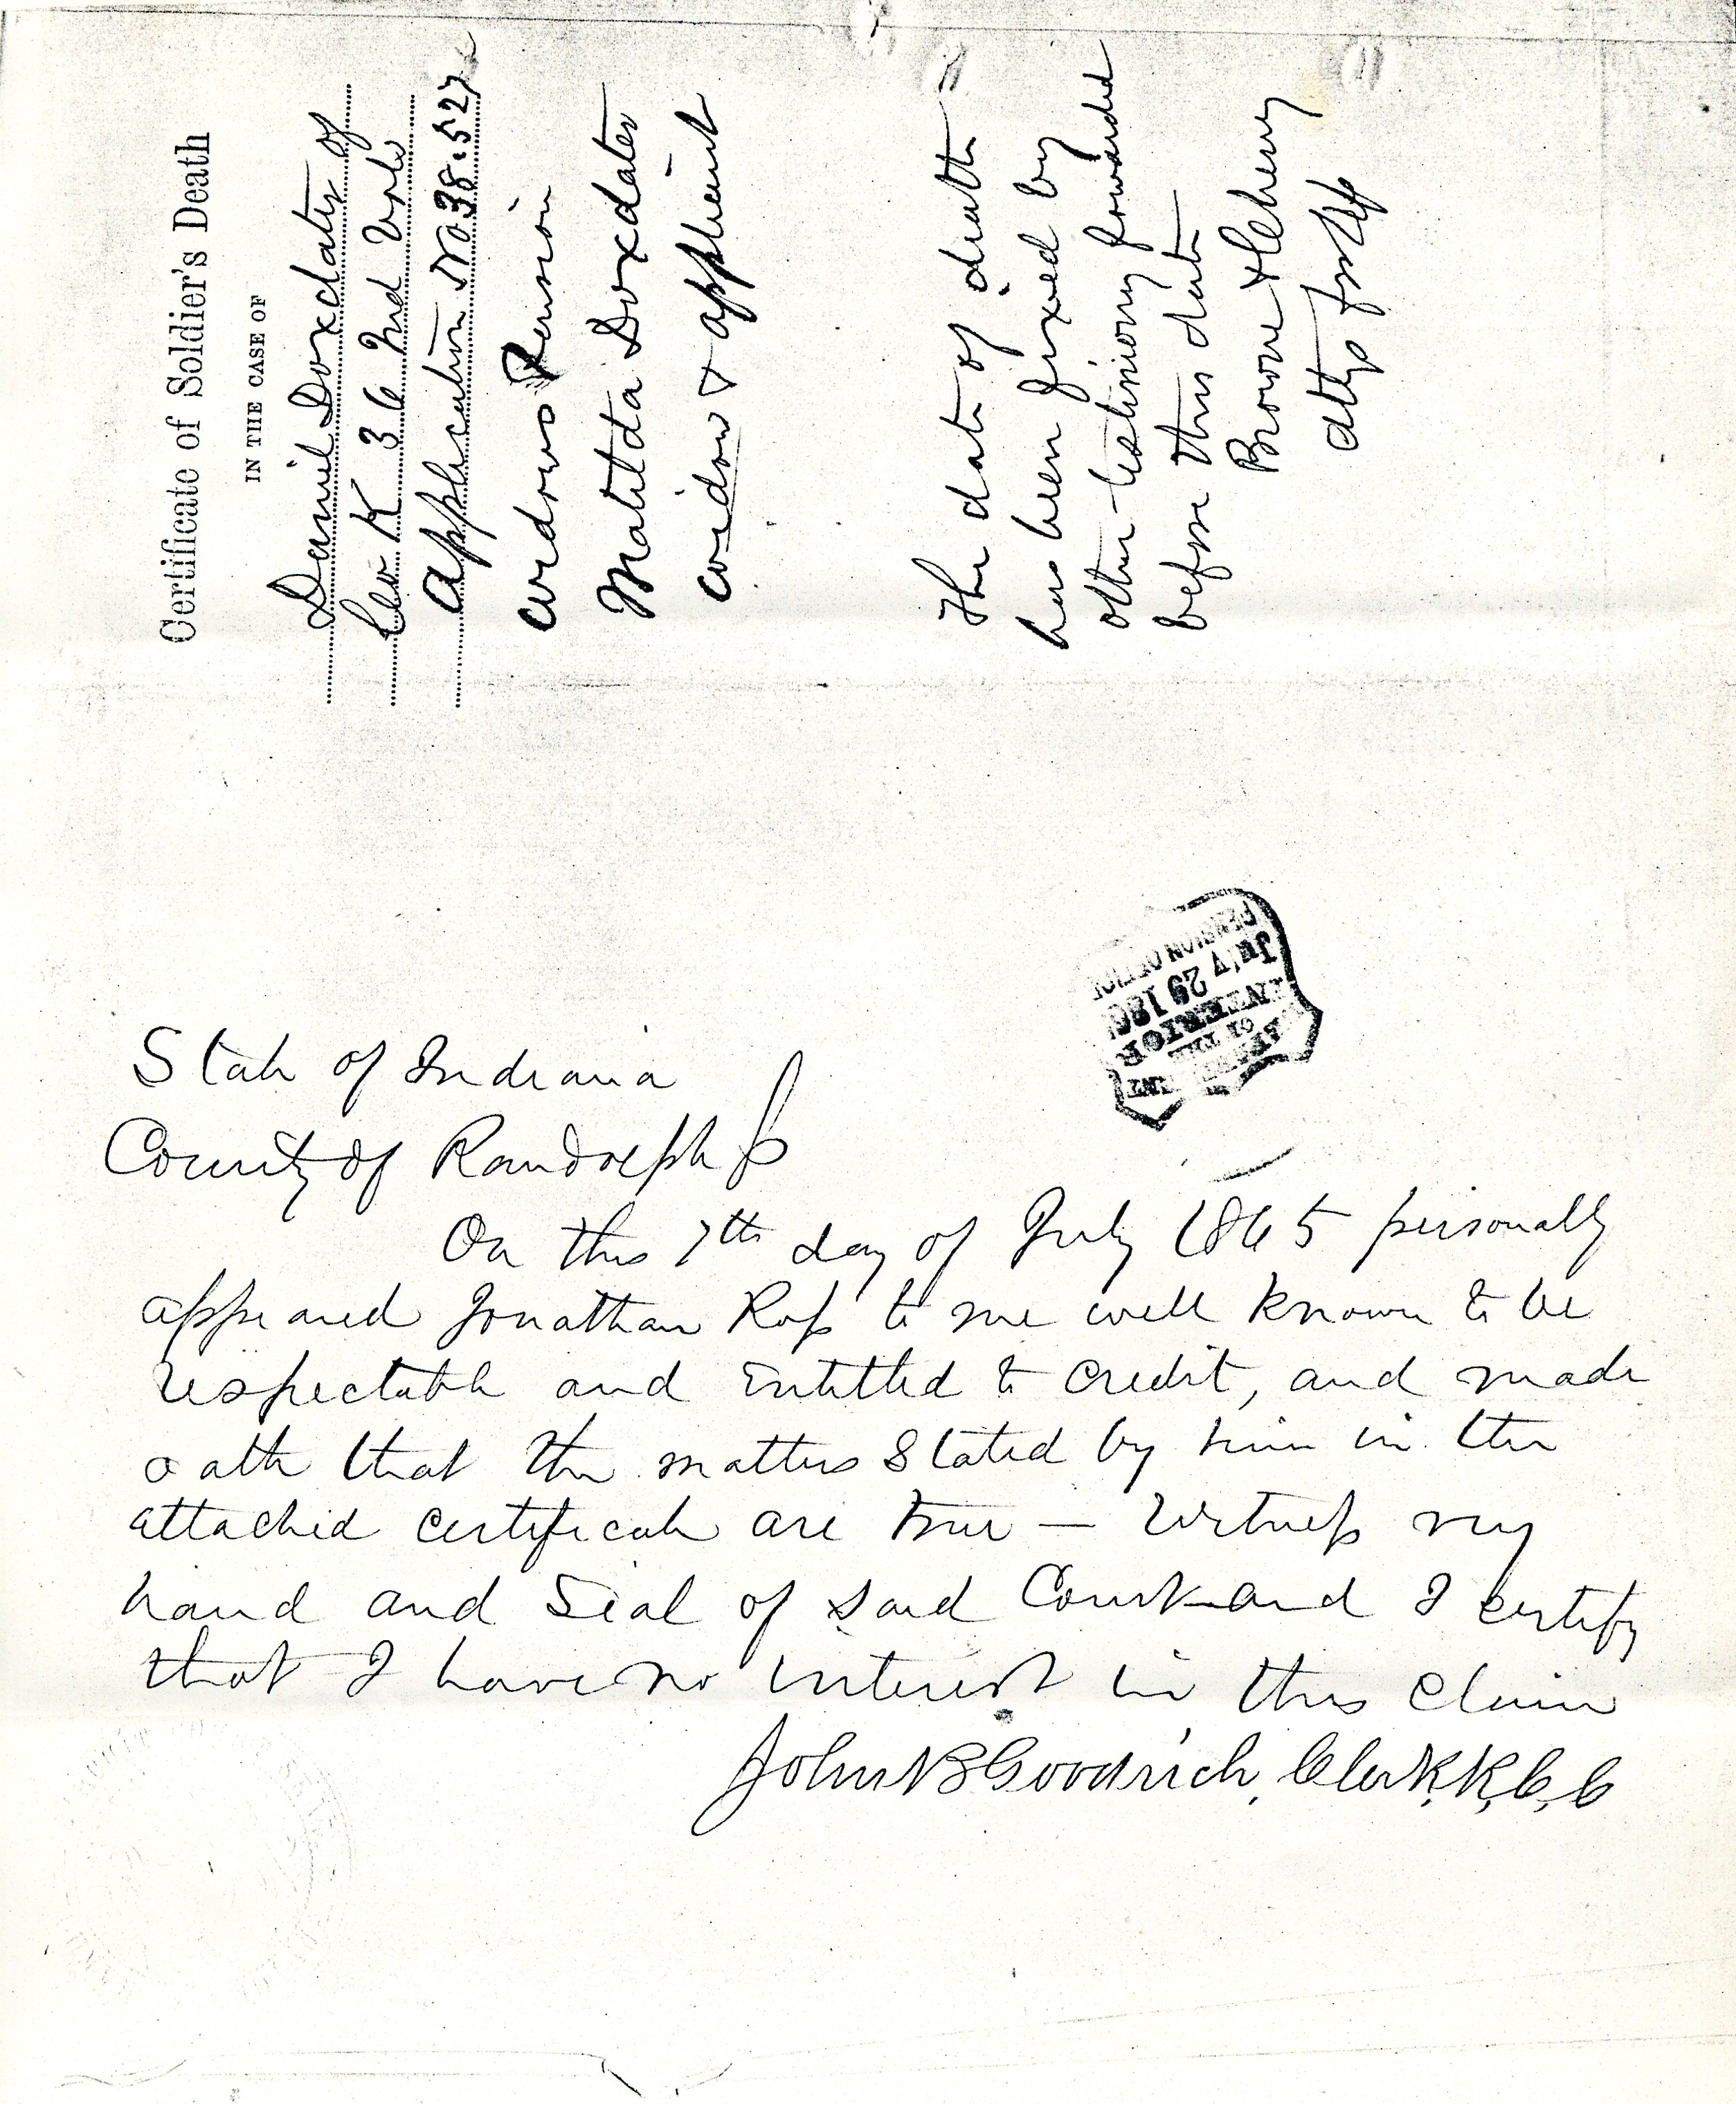 Certificate of Soldier's Death
IN THE CASE OF
Daniel Doxdater of
Co K 36 Ind Vols
Application No 38.527
Widows Pension
Matilda Doxdater
widow & applicant
The date of death
has been fixed by
other testimony forwarded
before this date
Browne & Cheney
attys for
PENSION OFFICE
JULY 29 186
INTERIOR
OF THE
State of Indiana
County of Randolph ss
On this 7th day of July 1865 personally
appeared Jonathan Ross to me well known to be
respectable and Entitled to credit, and made
oath that the matters Stated by him in the
attached certificate are true — Witness my
hand and Seal of said Court and I certify
that I have no interest in this Claim
John B Goodrich, Clerk, R, C, C